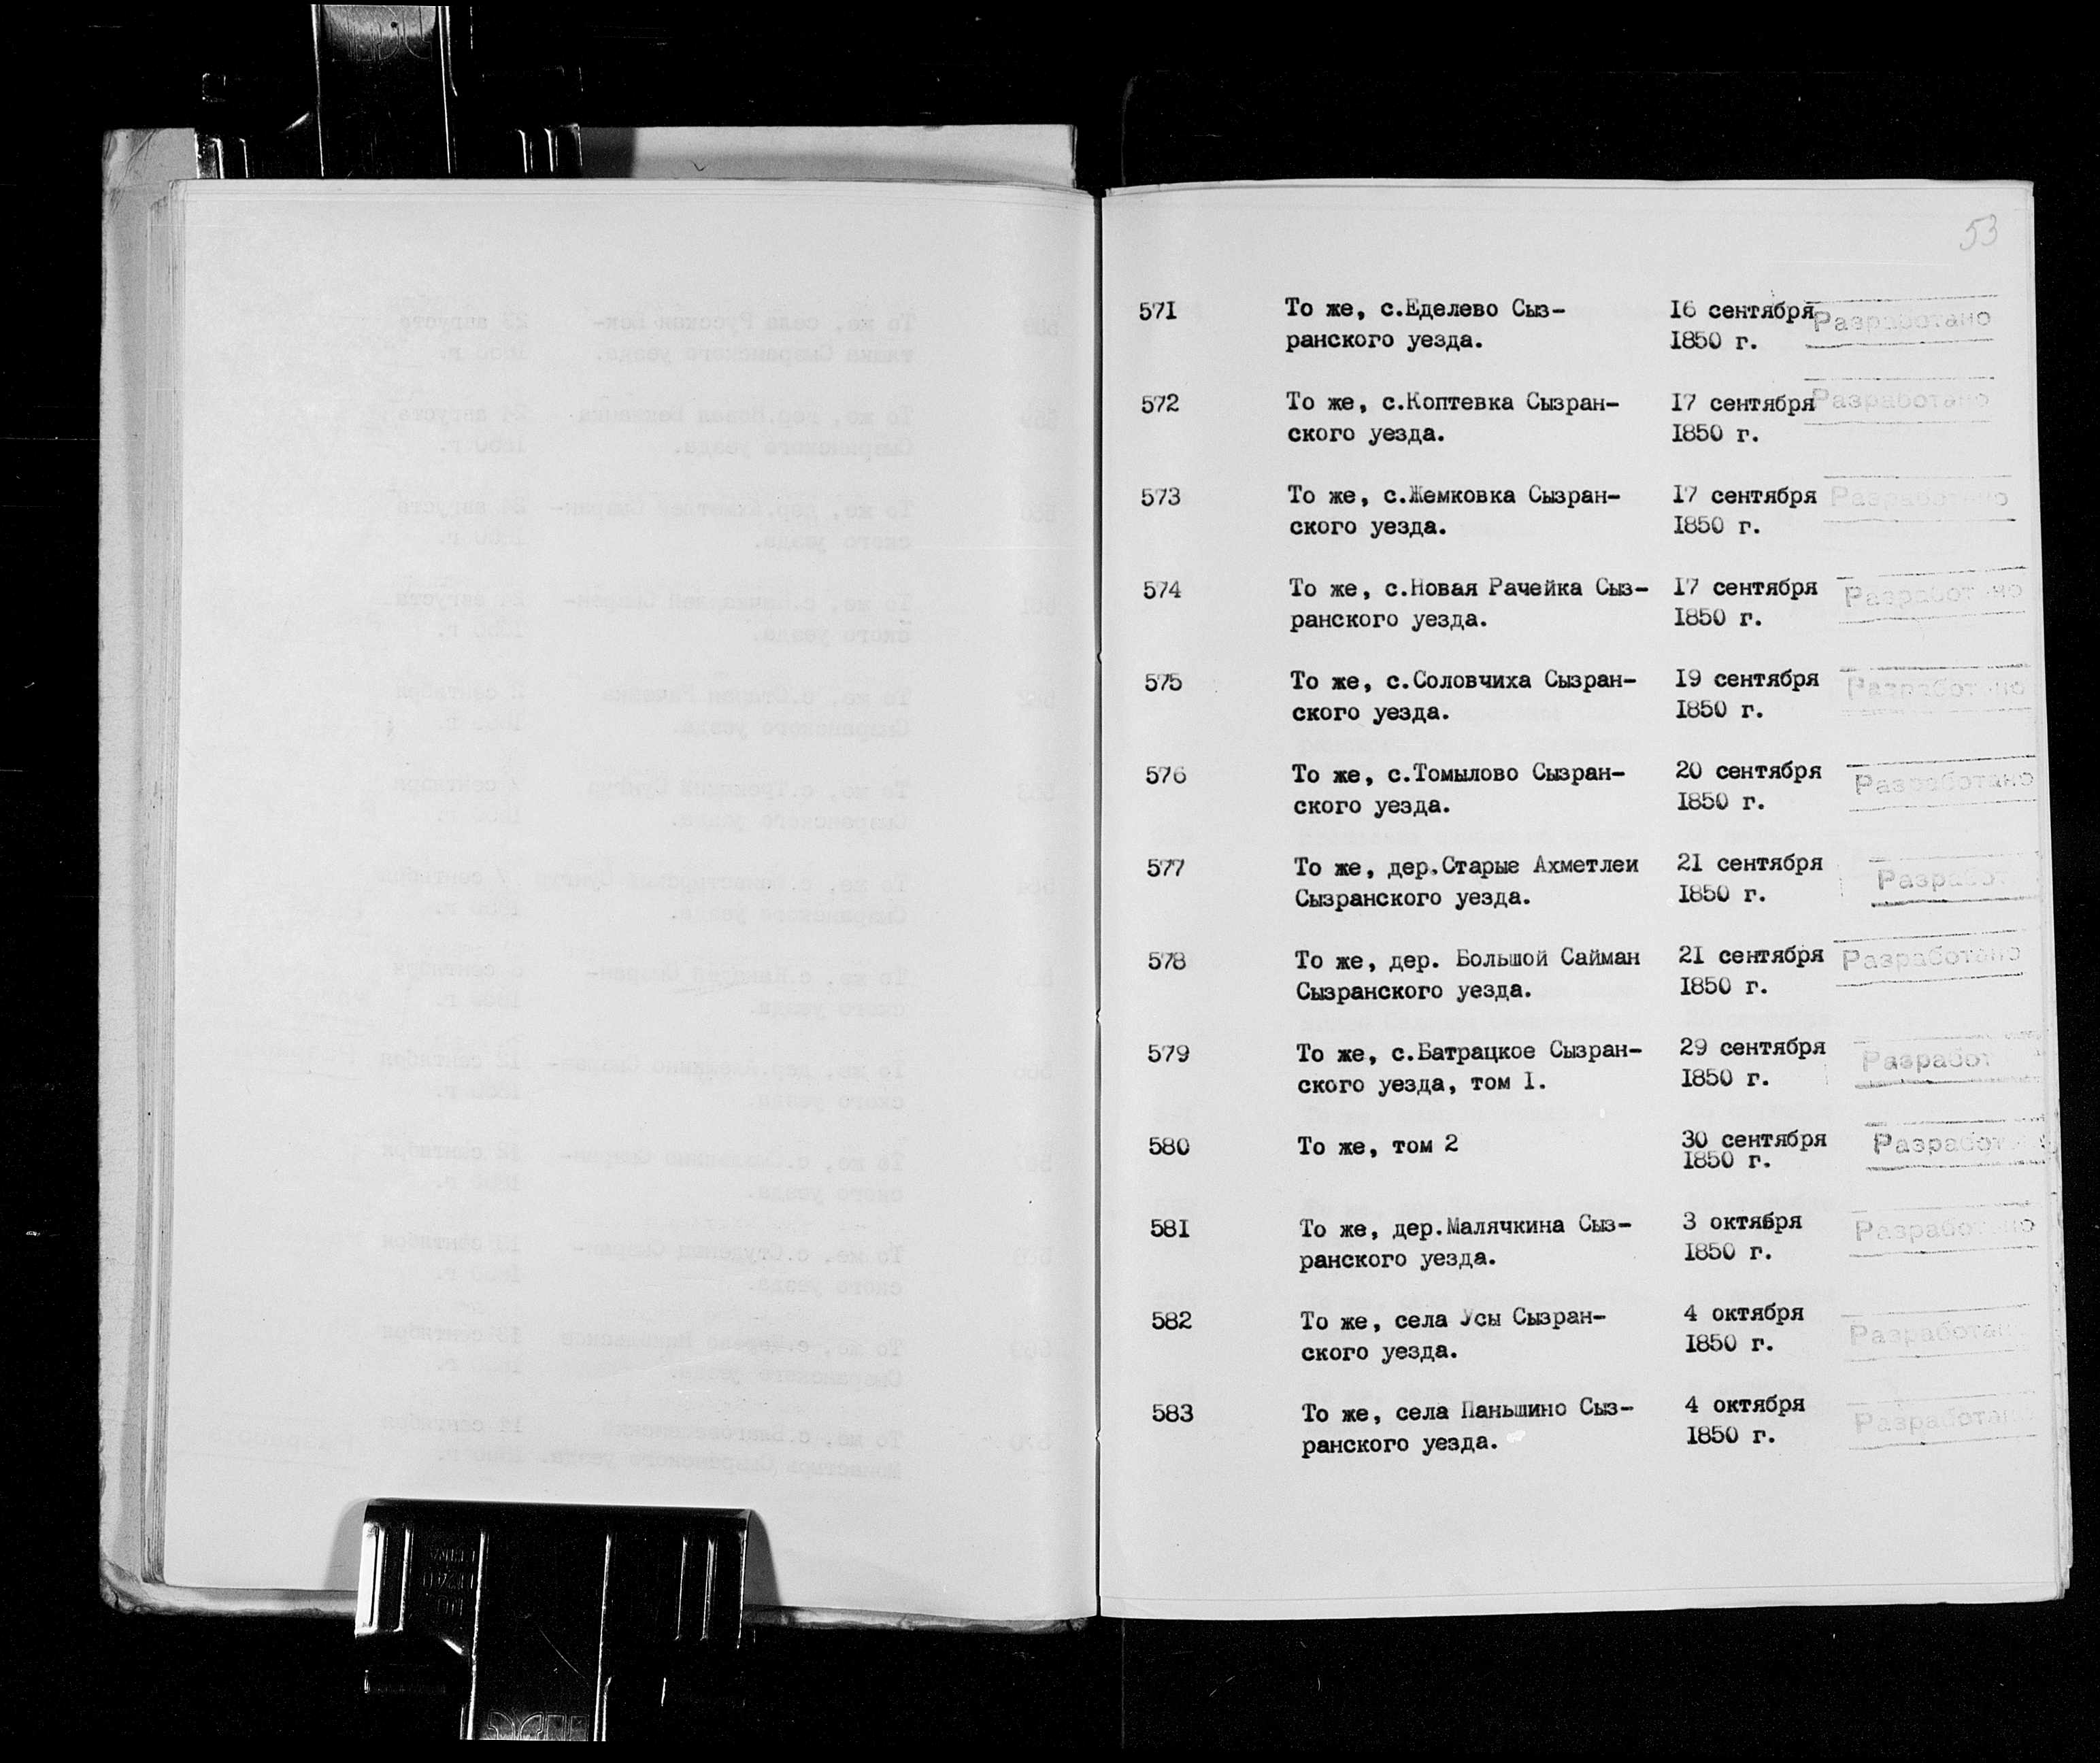 53
571 То же, с.Еделево Сыз- 16 сентября Разработано
ранского уезда. 1850 г.
572 То же, с.Коптевка Сызран- 17 сентября Разработано
ского уезда. 1850 г.
573 То же, с.Жемковка Сызран- 17 сентября Разработано
ского уезда. 1850 г.
574 То же, с.Новая Рачейка Сыз- 17 сентября Разработано
ранского уезда. 1850 г.
575 То же, с.Соловчиха Сызран- 19 сентября Разработано
ского уезда. 1850 г.
576 То же, с.Томылово Сызран- 20 сентября Разработано
ского уезда. 1850 г.
577 То же, дер.Старые Ахметлеи 21 сентября Разработ
Сызранского уезда. 1850 г.
578 То же, дер. Большой Сайман 21 сентября Разработано
Сызранского уезда. 1850 г.
579 То же, с.Батрацкое Сызран- 29 сентября Разработ
ского уезда, том I. 1850 г.
580 То же, том 2 30 сентября Разработ
1850 г.
581 То же, дер.Малячкина Сыз- 3 октября Разработано
ранского уезда. 1850 г.
582 То же, села Усы Сызран- 4 октября Разработан
ского уезда. 1850 г.
583 То же, села Паньшино Сыз- 4 октября Разработан
ранского уезда. 1850 г.